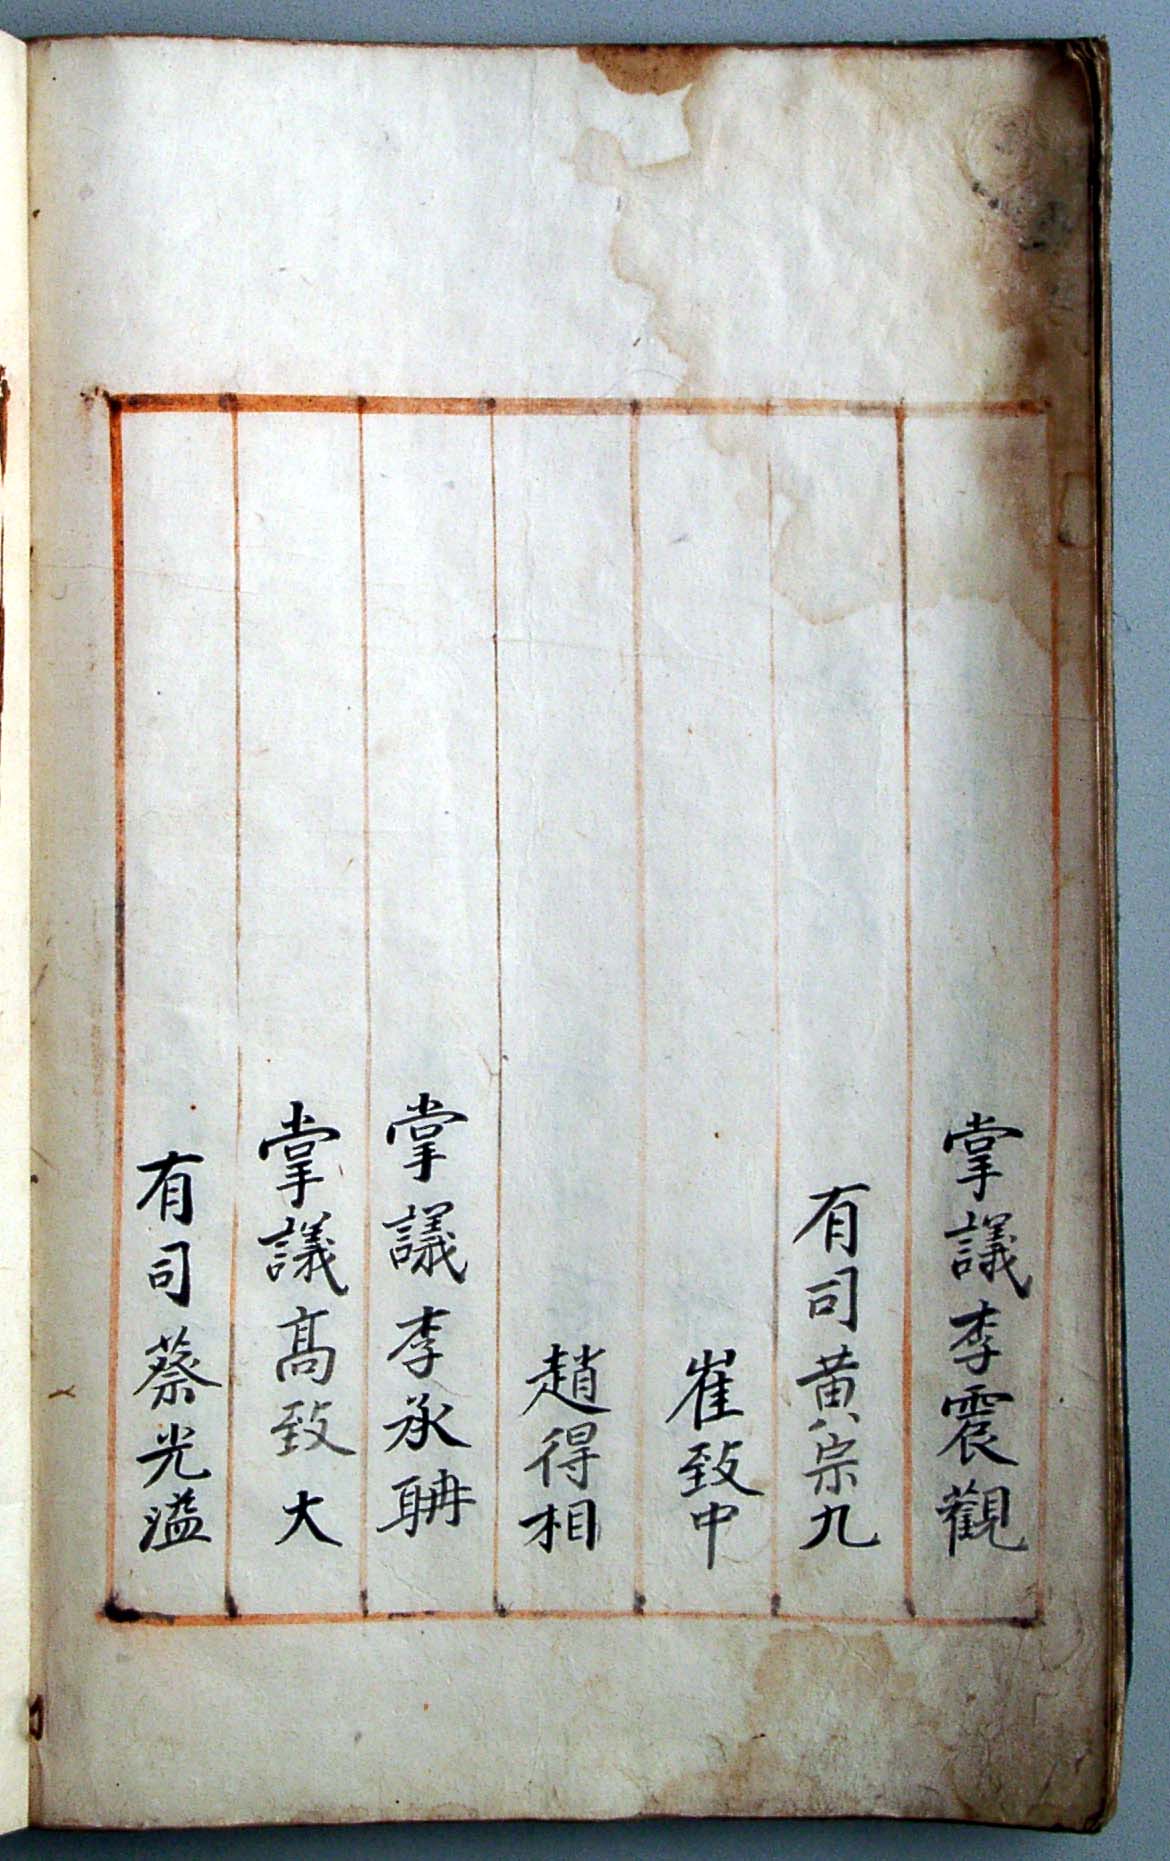 掌議李震觀
有司黃宗九
崔致中
趙得相
掌議李承聃
掌議高致大
有司蔡光溢